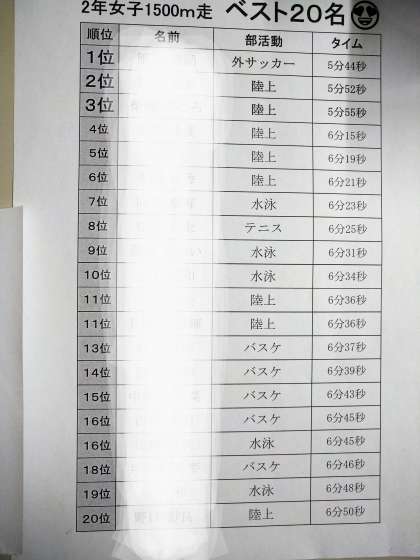 2年女子1500m走 ベスト20名
順位 名前 部活動 タイム
1位 外サッカー 5分44秒
2位 陸上 5分52秒
3位 陸上 5分55秒
4位 陸上 6分15秒
5位 陸上 6分19秒
6位 陸上 6分21秒
7位 水泳 6分23秒
8位 テニス 6分25秒
9位 水泳 6分31秒
10位 水泳 6分34秒
11位 陸上 6分36秒
11位 陸上 6分36秒
13位 バスケ 6分37秒
14位 バスケ 6分39秒
15位 バスケ 6分43秒
16位 バスケ 6分45秒
16位 水泳 6分45秒
18位 バスケ 6分46秒
19位 水泳 6分48秒
20位 陸上 6分50秒